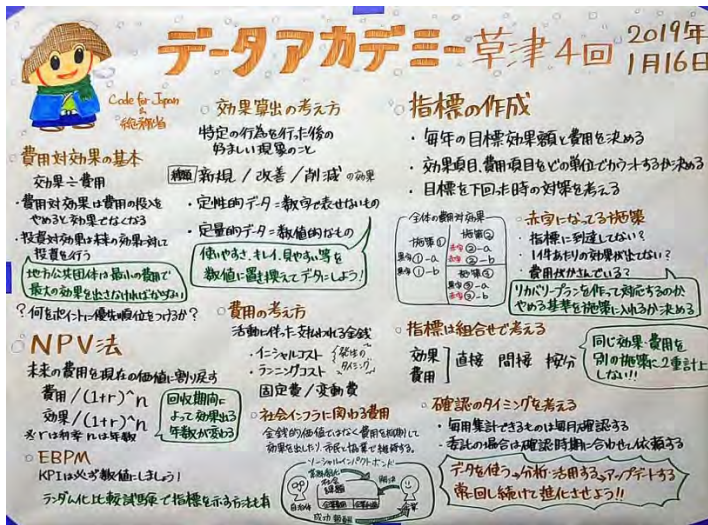 データアカデミー草津4回
2019年
1月16日
Code for Japan
&
総務省
費用対効果の基本
効果÷費用
・費用対効果は費用の投入を
やめると効果でなくなる
・投資対効果は未来の効果に対して
投資を行う
地方公共団体は最小の費用で
最大の効果を出さなければならない
?何をポイントに優先順位をつけるか?
NPV法
未来の費用を現在の価値に割り戻す
費用/(1+r)^n
効果/(1+r)^n
※rは利率 nは年数
回収期間に
よって効果出る
年数が変わる
EBPM
KPIは必ず数値にしましょう!
ランダム化比較試験来で指標を示す方法も有
効果算出の考え方
特定の行為を行った後の
好ましい現象のこと
種類/新規/改善/削減の効果
・定性的データ=数字で表せないもの
・定量的データ=数値的なもの
使いやすさ、キレイ、見やすい等を
数値に置き換えてデータにしよう!
費用の考え方
活動に伴った支払われる金銭
・イニシャルコスト
・ランニングコスト
発生の
タイミング
固定費/変動費
社会インフラに関わる費用
金銭的価値ではなく費用を抑制して
効果を出したり、市民と協業で維持する。
ソーシャルインパクトボンド
自治体
成功報酬
指標の作成
・毎年の目標効果額と費用を決める
・効果項目、費用項目をどの単位でカウントするか決める
・目標を下回った時の対策を考える
全体の費用対効果
施策①
黒字①-a
黒字①-b
施策②
赤字②-a
赤字②-b
施策③
黒字③-a
赤字③-b
赤字になってる施策
・指標に到達してない?
・1件あたりの効果が出てない?
・費用がかさんでいる?
リカバリープランを作って対応するのか
やめる基準を施策に入れるか決める
指標は組合せで考える
効果
費用
直接 間接 按分
同じ効果・費用を
別の施策に2重計上
しない!!
確認のタイミングを考える
・毎月集計できるものは毎月確認する
・委託の場合は確認時期に合わせて依頼する
データを使う→分析・活用する→アップデートする
常に回し続けて進化させよう!!